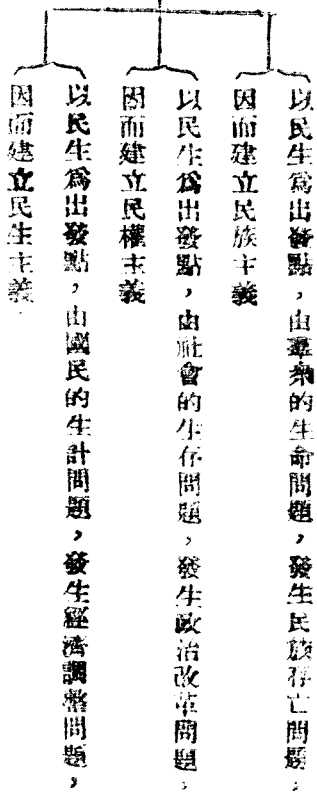 以民生爲出發點，由羣衆的生命問題，發生民族存亡問題，
因而建立民族主義
以民生爲出發點，由社會的生存問題，發生政治改革問題，
因而建立民權主義
以民生爲出發點，由國民的生計問題，發生經濟調整問題，
因而建立民生主義